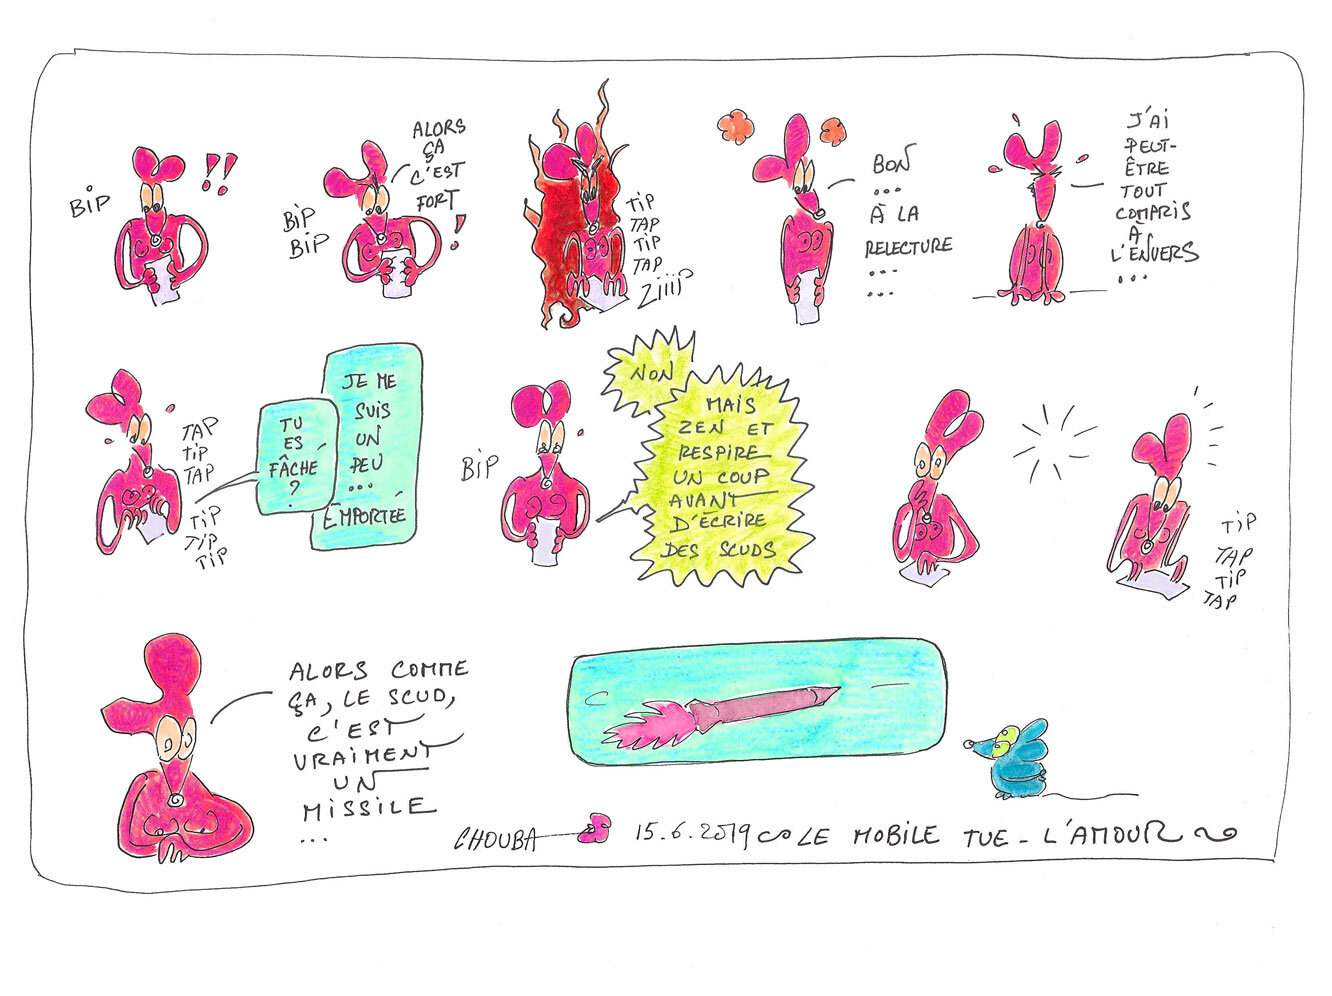 BIP
!!
BIP
BIP
ALORS
ÇA
C'EST
FORT
!
TIP
TAP
TIP
TAP
ZIIIP
BON
...
À LA
RELECTURE
...
...
J'AI
PEUT-
ÊTRE
TOUT
COMPRIS
À
L'ENVERS
...
TAP
TIP
TAP
TIP
TIP
TIP
TU
ES
FÂCHÉ
?
JE ME
SUIS
UN
PEU
...
EMPORTÉE
BIP
NON
MAIS
ZEN ET
RESPIRE
UN COUP
AVANT
D'ÉCRIRE
DES SCUDS
TIP
TAP
TIP
TAP
ALORS COMME
ÇA, LE SCUD,
C'EST
VRAIMENT
UN
MISSILE
...
CHOUBA 15.6.2019 LE MOBILE TUE-L'AMOUR